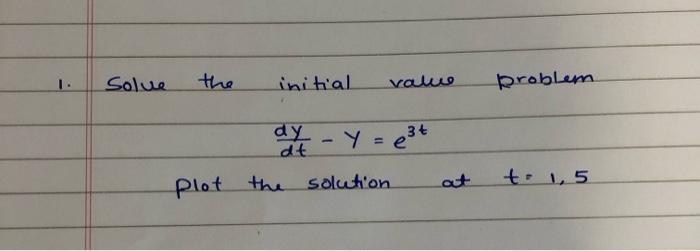 1. Solve the initial value problem
dy/dt - Y = e^3t
Plot the solution at t = 1, 5